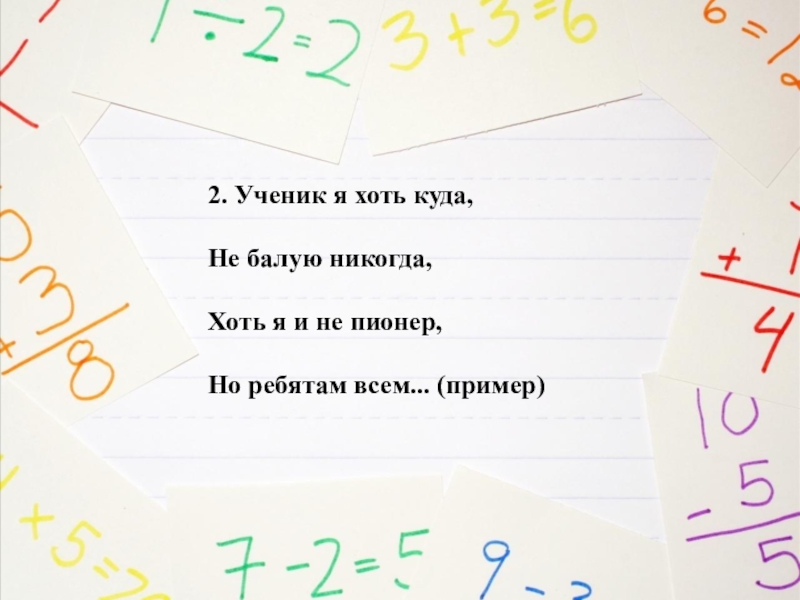 1 ÷ 2 = 2
3 + 3 = 6
6 = 12
2. Ученик я хоть куда,
Не балую никогда,
Хоть я и не пионер,
Но ребятам всем... (пример)
+
4
3
+
8
10
- 5
5
+ 5 =
7 - 2 = 5
9 -